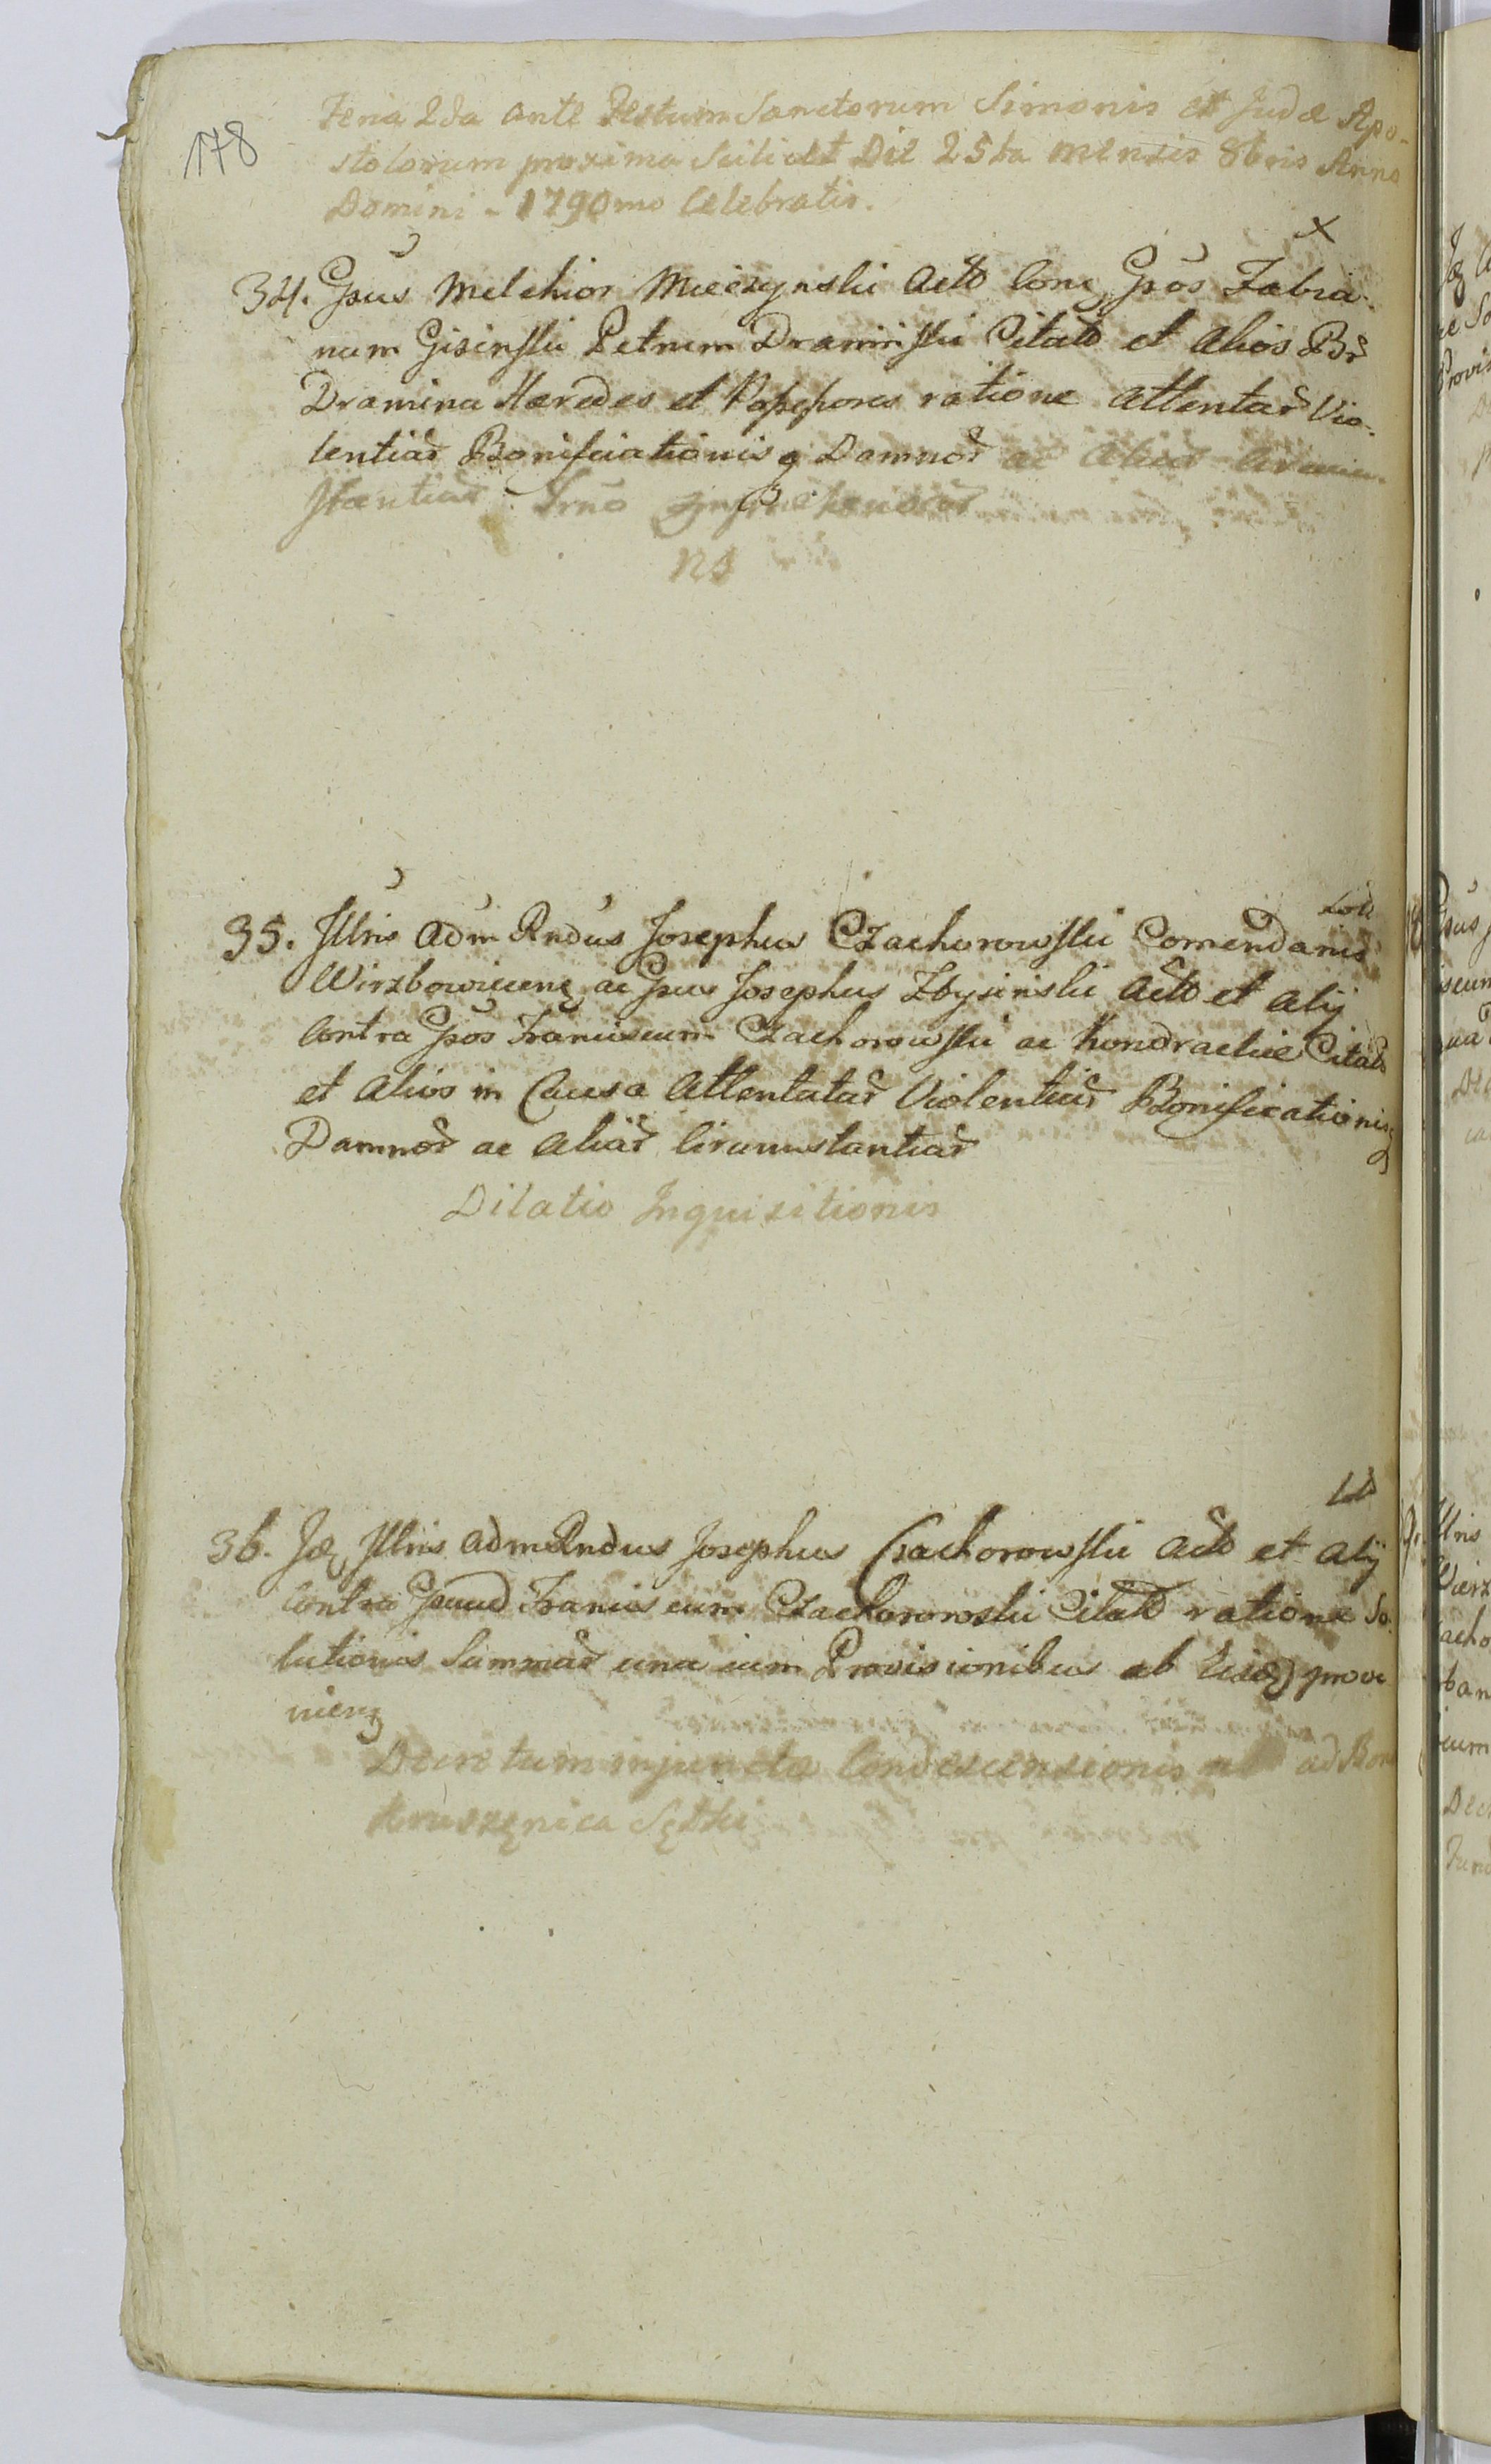 178
Feria 2da ante Festum Sanctorum Simonis et Judæ Apo-
stolorum proxima Scilicet Die 25ta mensis 8bris Anno
Domini - 1790mo Celebratis.
x
34. Gsus Melchior Mieczynski Actô Conĝ Gsos Fabia-
num Gisinski Petrum Draminski Citatô et Alios Br
Dramina Hæredes et Possessores ratione attentar Vio-
lentiar Bonificationisq Damnor ac aliar Circum-
stantiar
NS
35. Illris Adm Rndus Josephus Czachorowski Comendarius
Wirzbowiecenq ac Gsus Josephus Zbysinski Actô et Alij
Contra Gsos Franciscum Czachorowski ac Kondracki Citatô
et Alios in Causa Attentatar Violentiar Bonificationisq
Damnor ac Aliar Circumstantiar
Dilatio Inquisitionis
36. Idq Illris AdmRndus Josephus Czachorowski Actô et Alij
Contra Gsum Franciscum Czachorowski Citatô ratione So-
lutionis Summar una cum Provisionibus ab Eisd prove
nienq
Decretum injunctæ Condescensionis ad Bona
Kruszenica Sętki